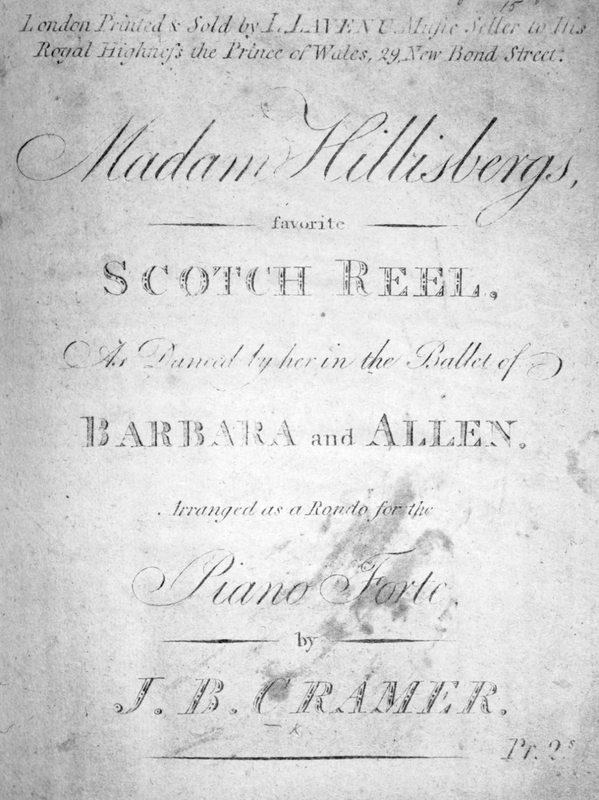 15
London Printed & Sold by L. LAVENU Music Seller to His
Royal Highneſs the Prince of Wales, 29, New Bond Street.
Madam Hillisbergs,
favorite
SCOTCH REEL,
As Danced by her in the Ballet of
BARBARA and ALLEN.
Arranged as a Rondo for the
Piano Forte
by
J. B. CRAMER.
k
Pr. 2s